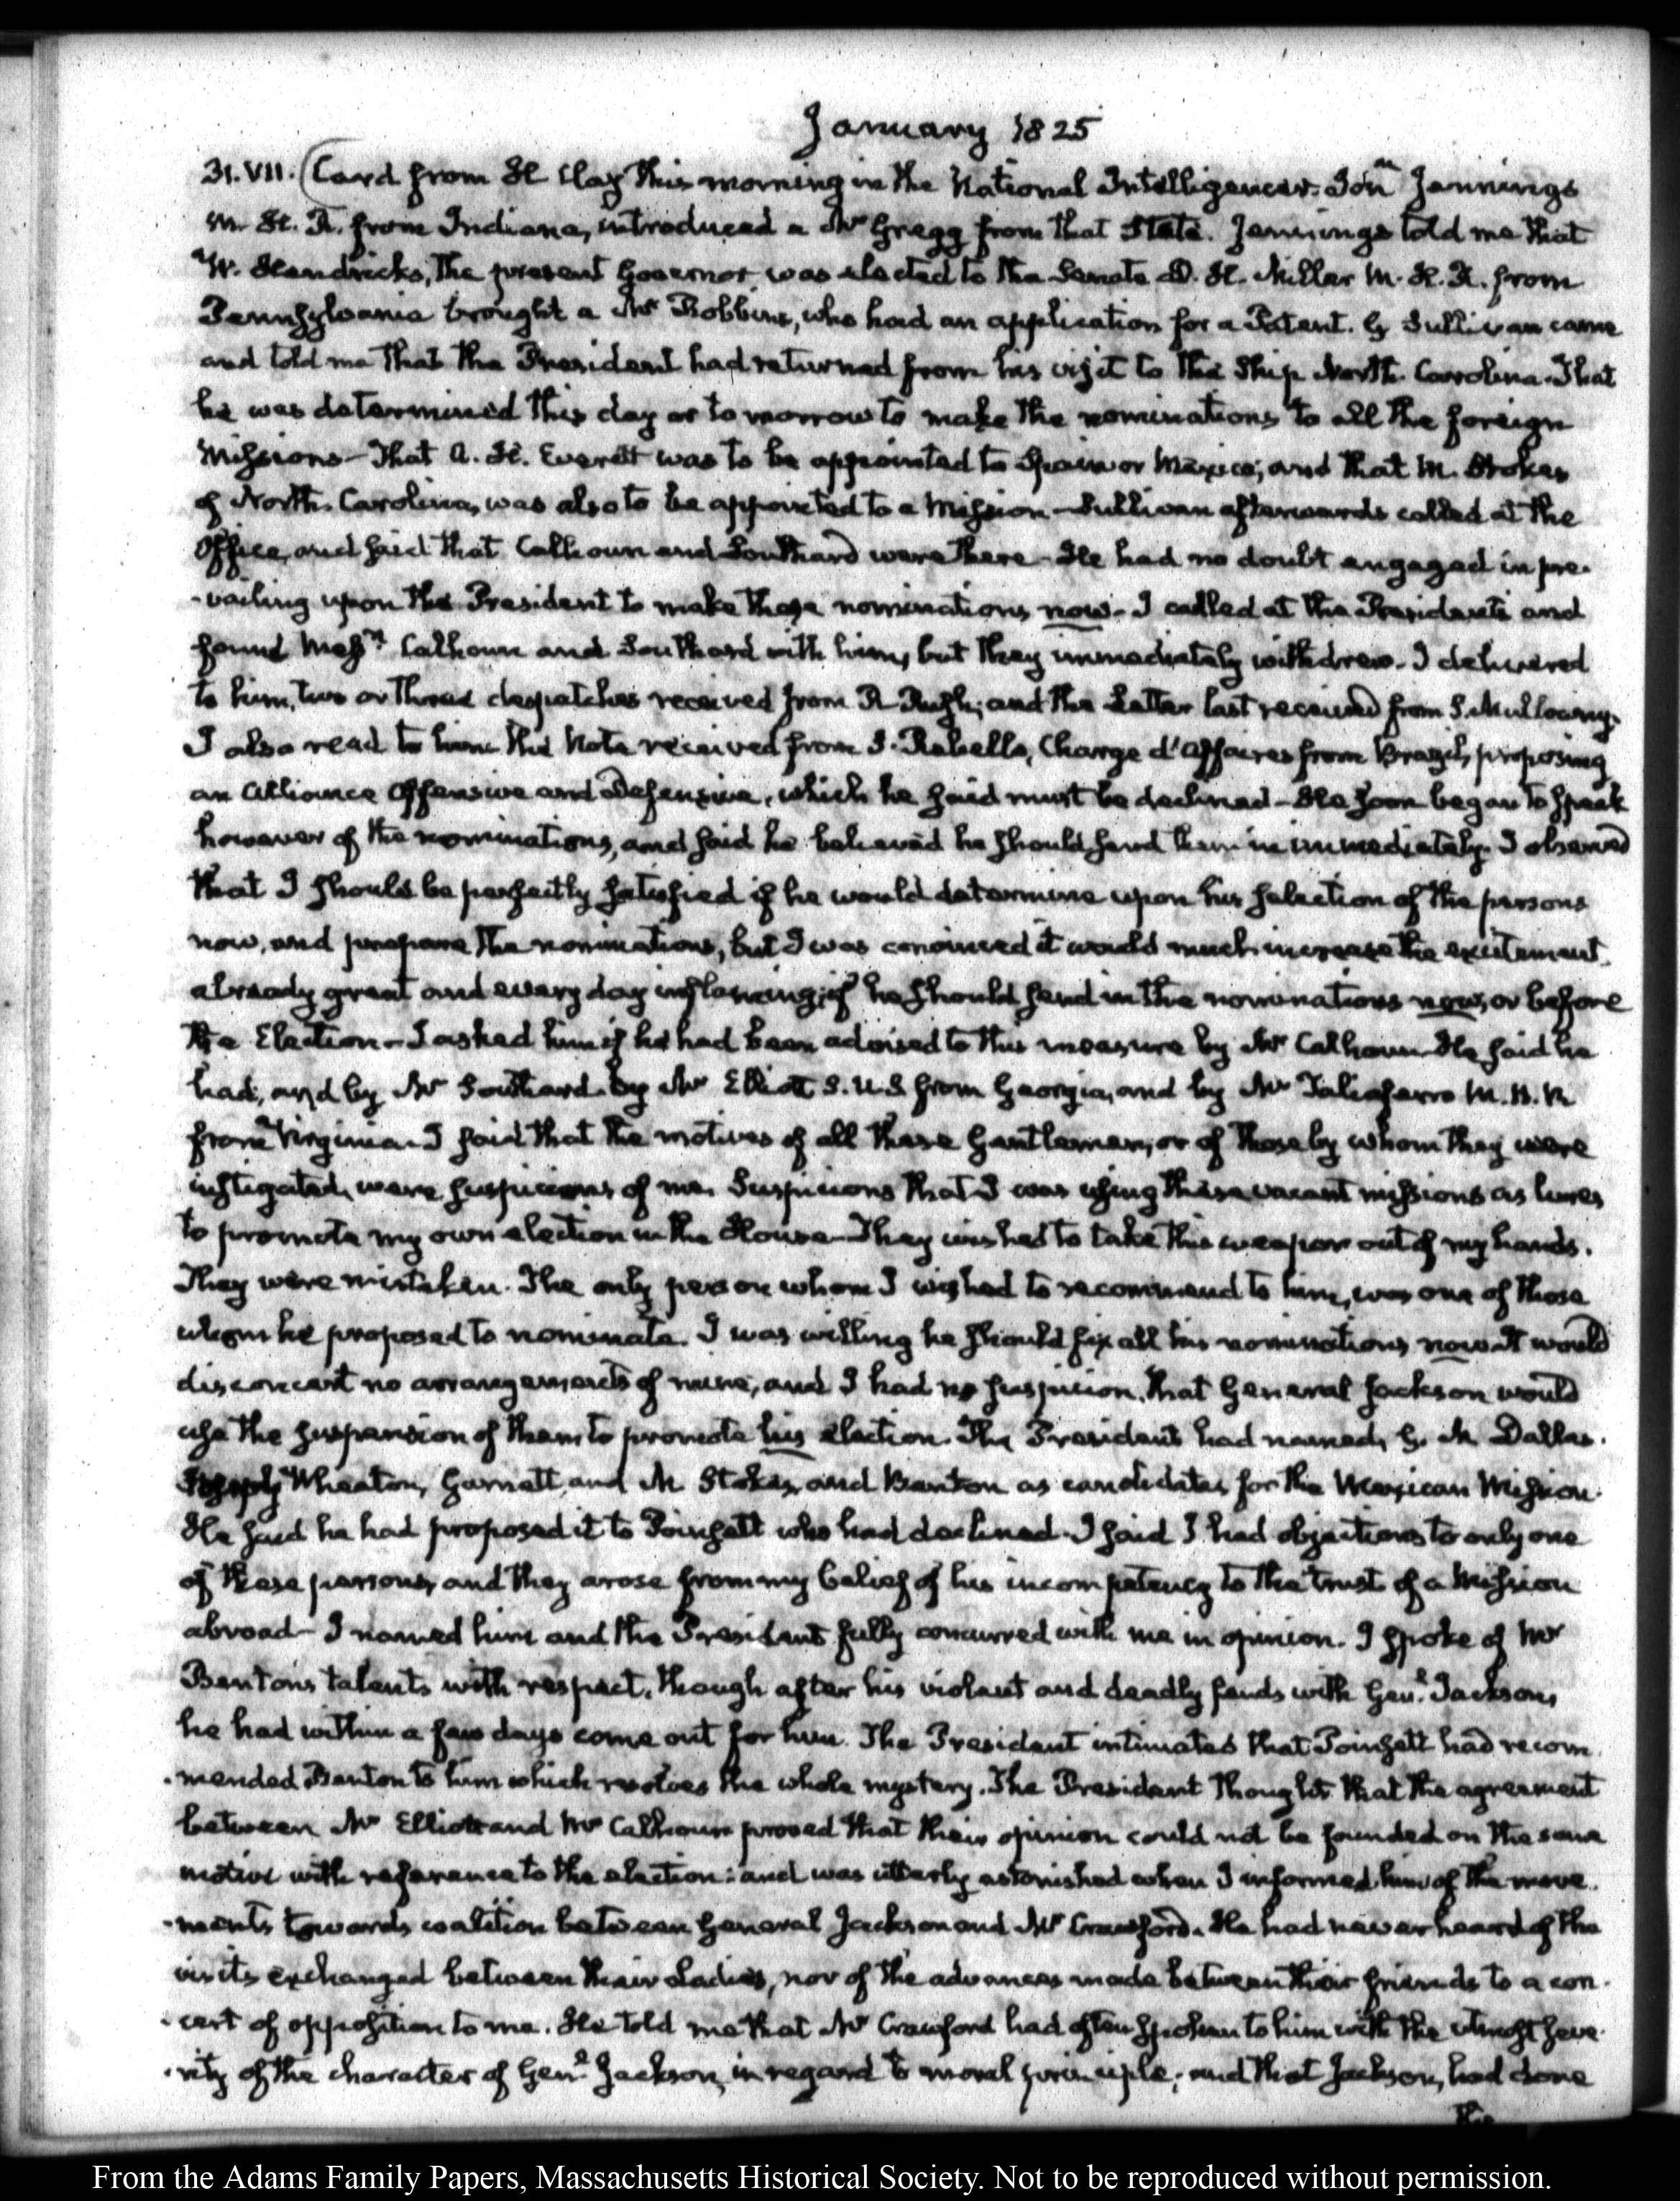 January 1825
31. VII. (Card from H Clay this morning in the National Intelligencer. Jonn Jennings
M. H. R. from Indiana, introduced a Mr Gregg from that State. Jennings told me that
W. Hendricks, the present Governor was elected to the Senate D. H. Miller M. H. R. from
Pennsylvania brought a Mr Robbins, who had an application for a Patent. G Sullivan came
and told me that the President had returned from his visit to the Ship North Carolina. That
he was determined this day or to morrow to make the nominations to all the foreign
Missions — That A. H. Everett was to be appointed to Spain or Mexico; and that M. Stokes
of North Carolina, was also to be appointed to a Mission — Sullivan afterwards called at the
Office, and said that Calhoun and Southard were there — He had no doubt engaged in pre-
-vailing upon the President to make these nominations now — I called at the Presidents and
found Messrs Calhoun and Southard with him, but they immediately withdrew. I delivered
to him, two or three despatches received from R Rush; and the Letter last received from J. Mullowny.
I also read to him the Note received from J. Rebello, Chargé d'Affaires from Brazil, proposing
an Alliance Offensive and Defensive, which he said must be declined — He soon began to speak
however of the nominations, and said he believed he should send them in immediately. I observed
that I should be perfectly satisfied if he would determine upon his selection of the persons
now, and prepare the nominations, but I was convinced it would much increase the excitement
already great and every day inflaming, if he should send in the nominations now, or before
the Election — I asked him if he had been advised to this measure by Mr Calhoun — He said he
had; and by Mr Southard — by Mr Elliott S. U. S from Georgia, and by Mr Taliaferro M. H. R
from Virginia — I said that the motives of all these Gentlemen, or of those by whom they were
instigated, were suspicions of me. Suspicions that I was using these vacant missions as lures
to promote my own election in the House — They wished to take this weapon out of my hands.
They were mistaken. The only person whom I wished to recommend to him, was one of those
whom he proposed to nominate. I was willing he should fix all his nominations now — It would
disconcert no arrangements of mine, and I had no suspicion, that General Jackson would
use the suspension of them to promote his election. The President had named, G. M Dallas.
Wheaton, Garnett, and M Stokes, and Benton as candidates for the Mexican Mission.
He said he had proposed it to Poinsett who had declined — I said I had objections to only one
of these persons, and they arose from my belief of his incompetency to the trust of a Mission
abroad — I named him and the President fully concurred with me in opinion. I spoke of Mr
Benton's talents with respect, though after his violent and deadly feuds with Genl Jackson,
he had within a few days come out for him. The President intimated that Poinsett had recom
-mended Benton to him which resolves the whole mystery. The President thought that the agreement
between Mr Elliott and Mr Calhoun proved that their opinion could not be founded on the same
motive with reference to the election: and was utterly astonished when I informed him of the move-
-ments towards coalition between General Jackson and Mr Crawford. He had never heard of the
visits exchanged between their Ladies, nor of the advances made between their friends to a con-
-cert of opposition to me. He told me that Mr Crawford had often spoken to him with the utmost seve-
-rity of the character of Genl Jackson, in regard to moral principle; and that Jackson, had done
the
From the Adams Family Papers, Massachusetts Historical Society. Not to be reproduced without permission.